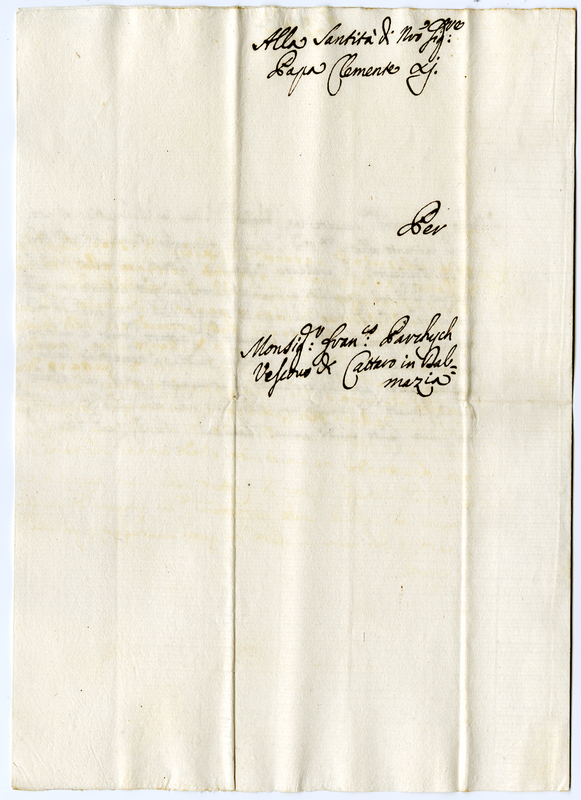 Alla Santità di Nrõ Sig.re
Papa Clemente XI.
Per
Monsig.r Fran.co Parchych
Vescovo di Cattaro in Dal=
mazia